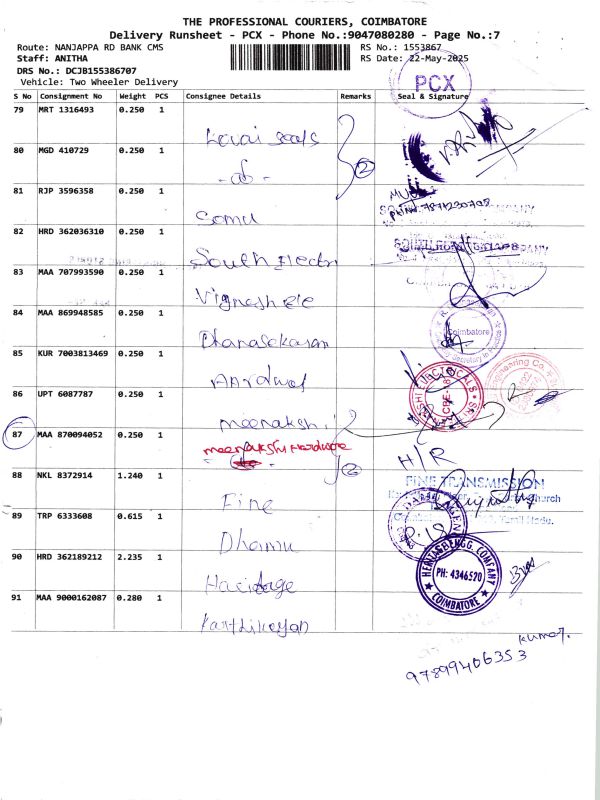 THE PROFESSIONAL COURIERS, COIMBATORE
Delivery Runsheet - PCX - Phone No.:9047080280 - Page No.:7
Route: NANJAPPA RD BANK CMS
RS No.: 1553867
Staff: ANITHA
RS Date: 22-May-2025
DRS No.: DCJB155386707
Vehicle: Two Wheeler Delivery
PCX
S No Consignment No Weight PCS Consignee Details Remarks Seal & Signature
79 MRT 1316493 0.250 1
Kovai seals
80 MGD 410729 0.250 1
-do- 2
81 RJP 3596358 0.250 1
Somu
82 HRD 362036310 0.250 1
South Electri
83 MAA 707993590 0.250 1
Vignesh Ele
84 MAA 869948585 0.250 1
Coimbatore
Dhanasekaran
85 KUR 7003813469 0.250 1
86 UPT 6087787 0.250 1
meenakshi
87 MAA 870094052 0.250 1
meenakshi Hardware
H/R
88 NKL 8372914 1.240 1
FINE TRANSMISSION
Fine
89 TRP 6333608 0.615 1
Dhamu
90 HRD 362189212 2.235 1
HERITAGE ENGG. COMPANY
PH: 4346520
COIMBATORE
Haridage
91 MAA 9000162087 0.280 1
Karthikeyan
Kumar.
97899406353